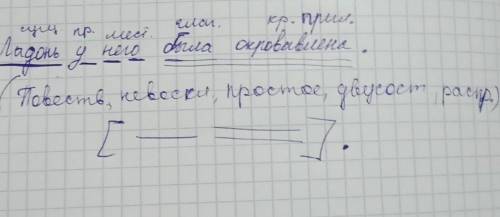 сущ пр. мест. глаг. кр. прил.
Ладонь у него была окровавлена.
(Повеств, невоскл, простое, двусост, распр.)
[ ].